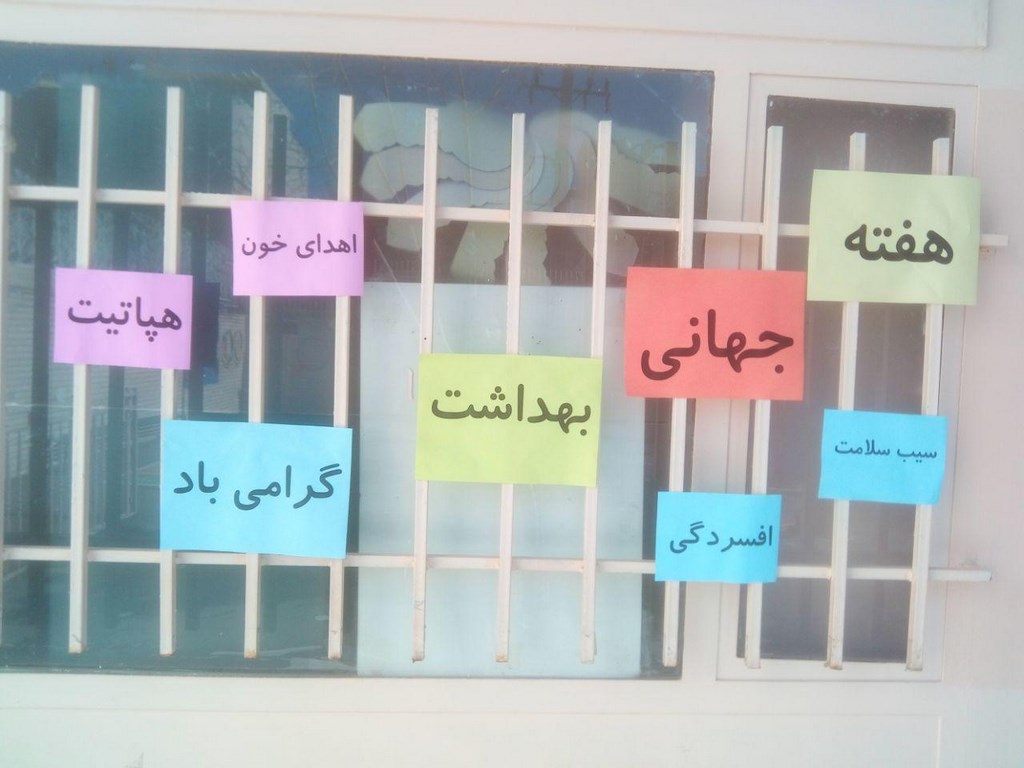 هفته
جهانی
بهداشت
گرامی باد
سیب سلامت
افسردگی
اهدای خون
هپاتیت